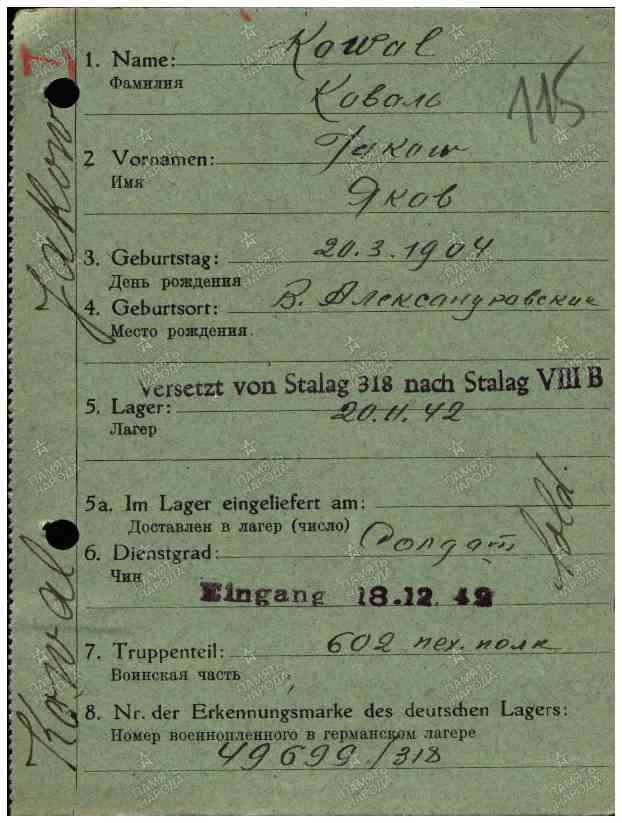 1. Name: Kowal
Фамилия
Коваль
115
2 Vornamen:
Имя
Яков
3. Geburtstag: 20.3.1904
День рождения
4. Geburtsort: В. Александровский
Место рождения.
Versetzt von Stalag 318 nach Stalag VIII B
5. Lager: 20.11.42
Лагер
5a. Im Lager eingeliefert am:
Доставлен в лагер (число)
6. Dienstgrad: Солдат
Чин
Sold.
Eingang 18.12.42
7. Truppenteil: 602 пех. полк
Воинская часть
8. Nr. der Erkennungsmarke des deutschen Lagers:
Номер военнопленного в германском лагере
49699/318
Kowal
Jakow
ПАМЯТЬ
НАРОДА